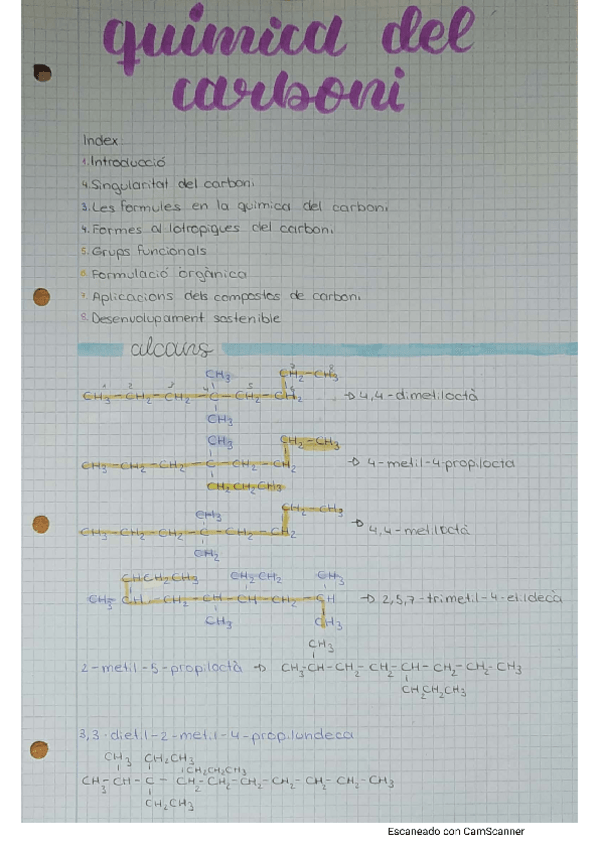 química del
carboni
Index
1. Introducció
4. Singularitat del carboni
3. Les formules en la quimica del carboni
4. Formes al·lotropiques del carboni
5. Grups funcionals
6. Formulació orgànica
7. Aplicacions dels compostos de carboni
8. Desenvolupament sostenible
alcans
CH3 CH2-CH3
1 2 3 4 5 6 7 8
CH3-CH2-CH2-C-CH2-CH2 → 4,4-dimetiloctà
CH3
CH3 CH2-CH3
CH3-CH2-CH2-C-CH2-CH2 → 4-metil-4-propilocta
CH2CH2CH3
CH3 CH2-CH3
CH3-CH2-CH2-C-CH2-CH2 → 4,4-metiloctà
CH2
CHCH2CH3 CH2CH2 CH3
CH3-CH-CH2-CH-CH-CH2-CH → 2,5,7-trimetil-4-etildecà
CH3 CH3
CH3
2-metil-5-propiloctà → CH3-CH-CH2-CH2-CH-CH2-CH2-CH3
CH2CH2CH3
3,3-dietil-2-metil-4-propilundeca
CH3 CH2CH3
CH2CH2CH3
CH3-CH-C-CH2-CH2-CH2-CH2-CH2-CH2-CH3
CH2CH3
Escaneado con CamScanner